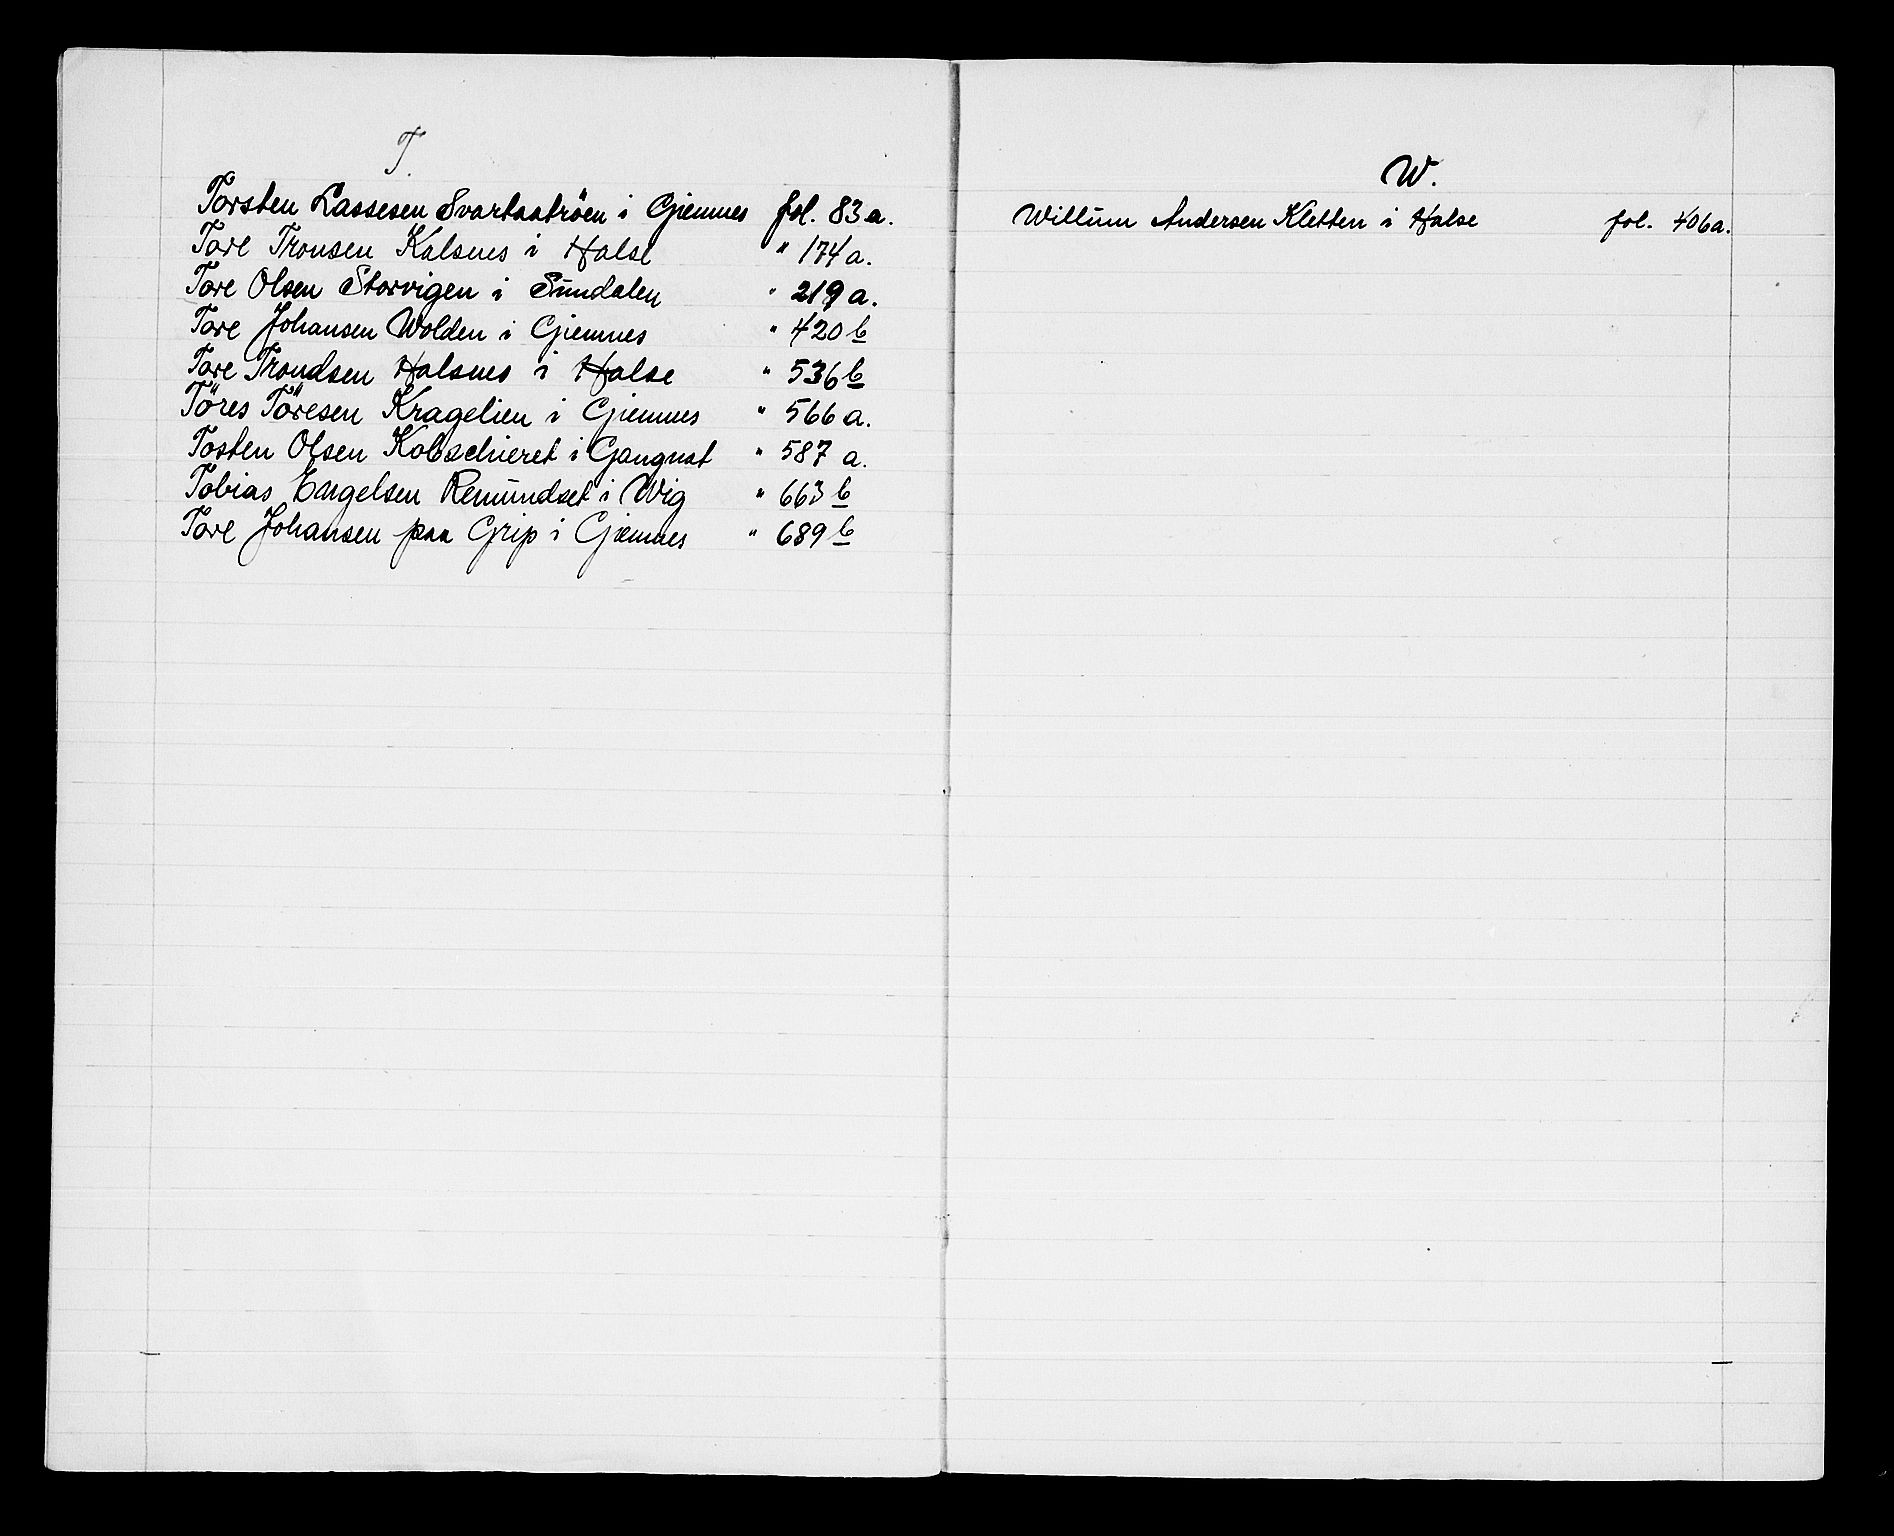 T.
Torsten Lassesen Svartaatröen i Gjemnes fol. 83 a.
Tore Tronsen Kalsnes i Halse " 174 a.
Tore Olsen Storvigen i Sŭndalen " 219 a.
Tore Johansen Wolden i Gjemnes " 420 b
Tore Trondsen Halsnes i Halse " 536 b
Töres Töresen Kragelien i Gjemnes " 566 a.
Tosten Olsen Kobschieret i Gangnat " 587 a.
Tobias Engelsen Remŭndset i Wig " 663 b
Tore Johansen paa Grip i Gjemnes " 689 b
W.
Willŭm Andersen Kletten i Halse fol. 406 a.